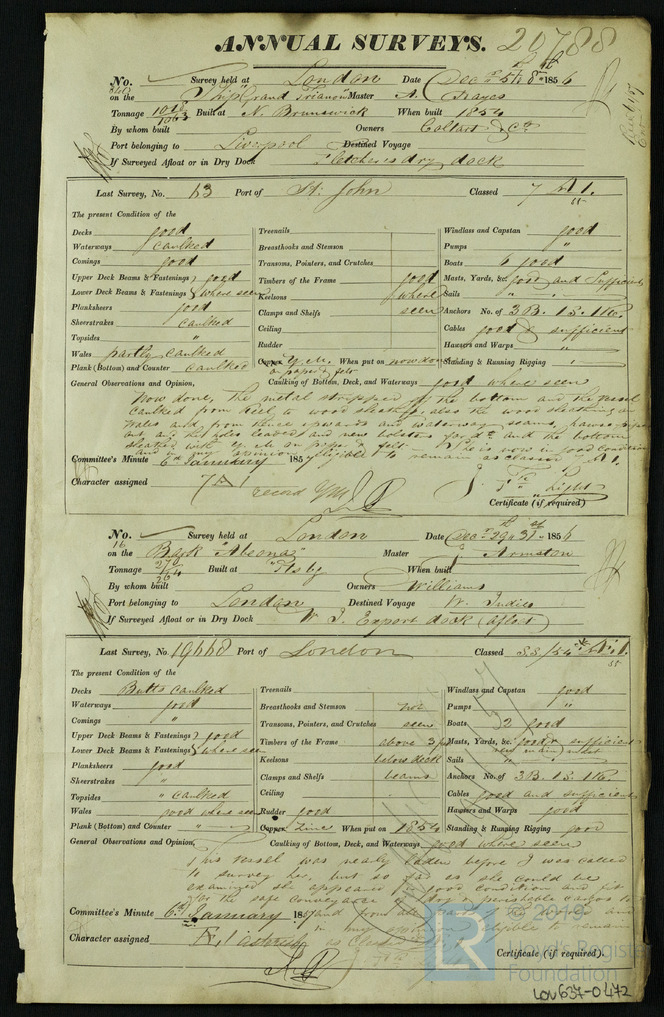 ANNUAL SURVEYS. 20788
No. Survey held at London Date Dec 5th 8th 1856
on the Ship "Grand Trianon" Master A.
Tonnage Built at N. Brunswick When built 1854
By whom built Owners Coltart & Co
Port belonging to Liverpool Destined Voyage
If Surveyed Afloat or in Dry Dock Fletchers dry dock
Last Survey, No. 13 Port of St. John Classed 7 A 1.
The present Condition of the
Decks good Treenails Windlass and Capstan good
Waterways caulked Breasthooks and Stemson Pumps "
Comings good Transoms, Pointers, and Crutches Boats 6 good
Upper Deck Beams & Fastenings good Timbers of the Frame good Masts, Yards, &c. good and sufficient
Lower Deck Beams & Fastenings where seen Keelsons where Sails "
Planksheers good Clamps and Shelfs seen Anchors No. of 3 B. 1 S. 1 K.
Sheerstrakes caulked Ceiling Cables good & sufficient
Topsides " Rudder Hawsers and Warps "
Wales partly caulked Copper Y.M. When put on now done Standing & Running Rigging "
Plank (Bottom) and Counter caulked on paper & felt
General Observations and Opinion, Caulking of Bottom, Deck, and Waterways good where seen
Now done, the metal stripped off the bottom and the vessel
caulked from keel to wood sheathing, also the wood sheathing on
wales and from thence upwards and waterway seams, hawse pipes
out, all the holes leaded and new bolsters for do. and the bottom
sheathed with Y.M. on paper & felt - She is now in good condition
and in my opinion eligible to remain as classed 7 A 1.
Committee's Minute 6th January 1857
Character assigned 7 A 1
record YM
Light
Certificate (if required)
No. Survey held at London Date Dec 29th 31st 1856
16
on the Bark "Alcona" Master E Armston
Tonnage 270 Built at "Itsby" When built
264
By whom built Owners Williams
Port belonging to London Destined Voyage W. Indies
If Surveyed Afloat or in Dry Dock W. I. Export dock (afloat)
Last Survey, No. 19668 Port of London Classed SS/54 A 1.
The present Condition of the
Decks Butts caulked Treenails Windlass and Capstan good
Waterways good Breasthooks and Stemson not Pumps "
Comings " Transoms, Pointers, and Crutches seen Boats 2 good
Upper Deck Beams & Fastenings good Timbers of the Frame above Masts, Yards, &c. good & sufficient
Lower Deck Beams & Fastenings where seen Keelsons below deck Sails "
Planksheers good Clamps and Shelfs beams Anchors No. of 3 B. 1 S. 1 K.
Sheerstrakes " Ceiling Cables good and sufficient
Topsides " caulked Rudder good Hawsers and Warps good
Wales good where seen Copper Zinc When put on 1854 Standing & Running Rigging good
Plank (Bottom) and Counter "
General Observations and Opinion, Caulking of Bottom, Deck, and Waterways good where seen
This vessel was nearly laden before I was called
to survey her, but so far as she could be
examined she appeared in good condition and fit
for the safe conveyance of dry & perishable cargos to
and from all parts and
in my opinion eligible to remain
as classed
Committee's Minute 6th January 1857
Character assigned
Certificate (if required).
© 2019
Lloyd's Register
Foundation
LON637-0472